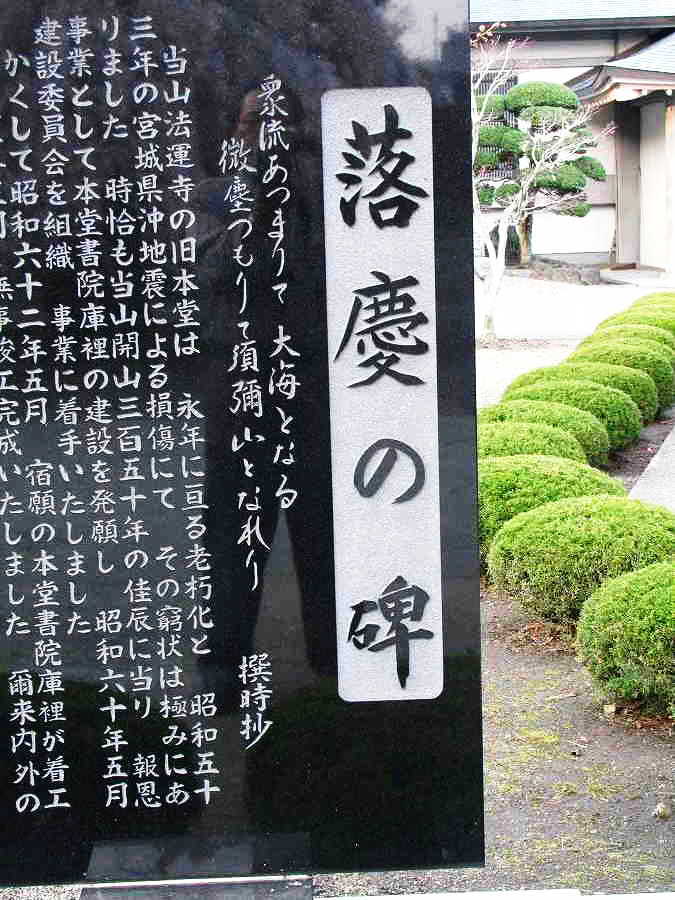 落慶の碑
衆流あつまりて 大海となる
微塵つもりて須彌山となれり 撰時抄
当山法運寺の旧本堂は 永年に亘る老朽化と 昭和五十
三年の宮城県沖地震による損傷にて その窮状は極みにあ
りました 時恰も当山開山三百五十年の佳辰に当り 報恩
事業として本堂書院庫裡の建設を発願し 昭和六十年五月
建設委員会を組織 事業に着手いたしました
かくして昭和六十二年五月 宿願の本堂書院庫裡が着工
無事竣工完成いたしました 爾来内外の